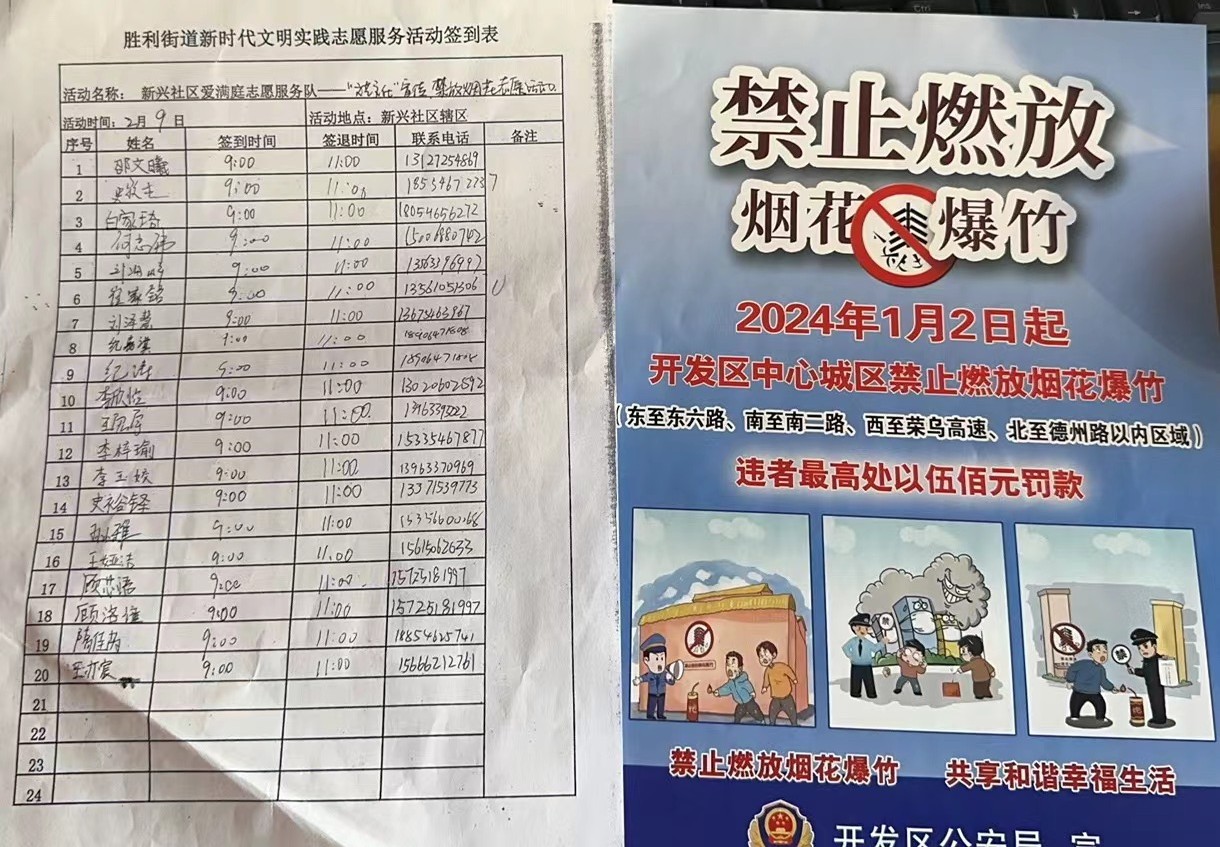 胜利街道新时代文明实践志愿服务活动签到表
活动名称： 新兴社区爱满庭志愿服务队——"
活动时间：2月9日 活动地点：新兴社区辖区
序号 姓名 签到时间 签退时间 联系电话 备注
1 邵文曦 9:00 11:00 13127254869
2 9:00 11:00
3 白家琦 9:00 11:00 18054656272
4 何志强 9:00 11:00 15006880742
5 9:00 11:00 13563196997
6 9:00 11:00 13561051506
7 刘泽慧 9:00 11:00 13675463967
8 9:00 11:00
9 纪涛 9:00 11:00
10 李欣怡 9:00 11:00 13020602592
11 9:00 11:00
12 李梓瑜 9:00 11:00 15335467877
13 李玉姣 9:00 11:00 13963370969
14 史裕铎 9:00 11:00 13371539773
15 9:00 11:00
16 9:00 11:00 15615062633
17 9:00 11:00 15725181997
18 顾洛维 9:00 11:00 15725181997
19 9:00 11:00 18854625741
20 王亦宸 9:00 11:00 15666212761
21
22
23
24
禁止燃放
烟花爆竹
2024年1月2日起
开发区中心城区禁止燃放烟花爆竹
（东至东六路、南至南二路、西至荣乌高速、北至德州路以内区域）
违者最高处以伍佰元罚款
禁
禁
禁止燃放烟花爆竹 共享和谐幸福生活
开发区公安局 宣